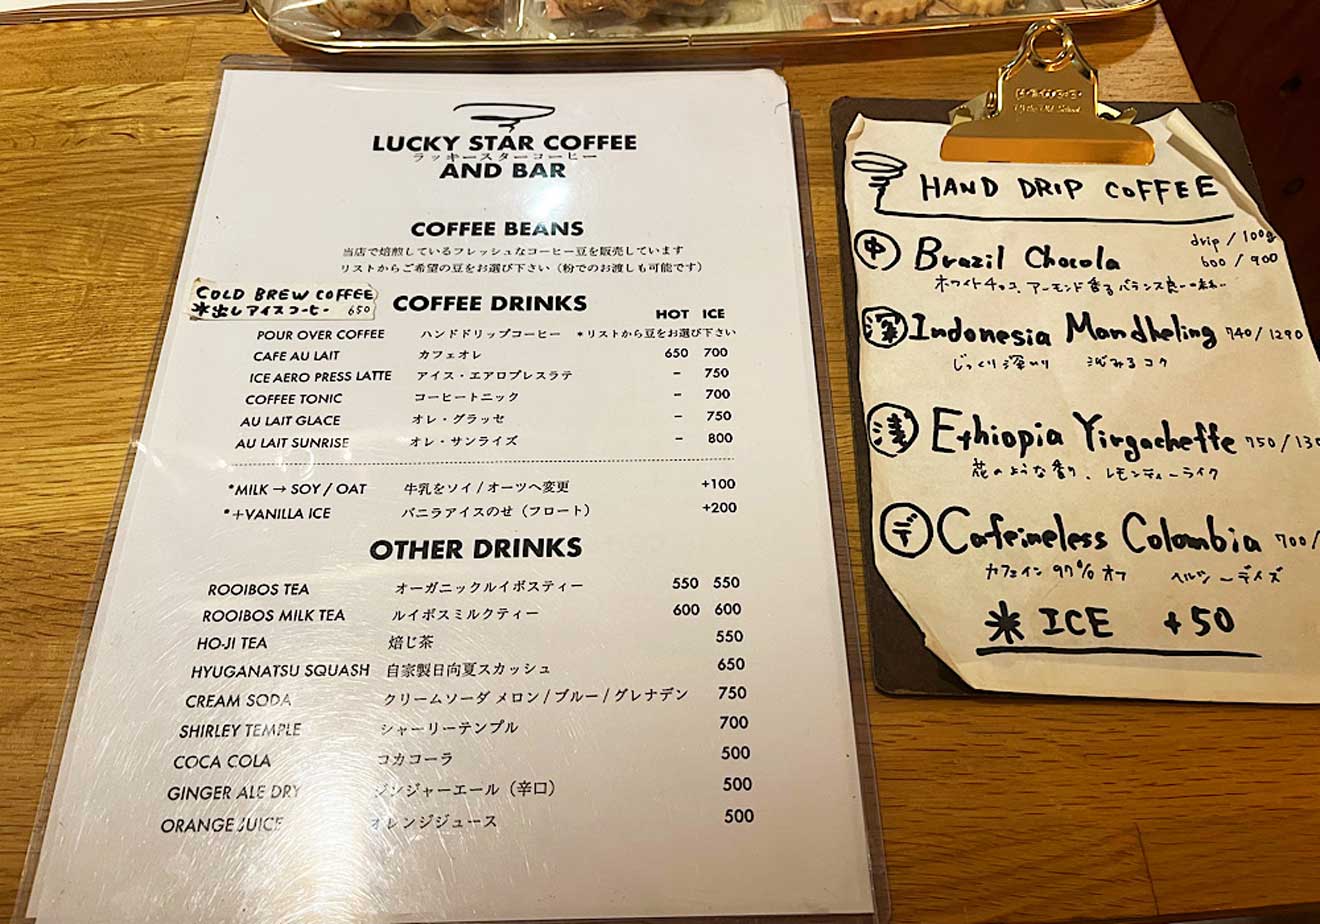 LUCKY STAR COFFEE
ラッキースターコーヒー
AND BAR
COFFEE BEANS
当店で焙煎しているフレッシュなコーヒー豆を販売しています
リストからご希望の豆をお選び下さい（粉でのお渡しも可能です）
COLD BREW COFFEE
水出しアイスコーヒー 650
COFFEE DRINKS
HOT ICE
POUR OVER COFFEE ハンドドリップコーヒー *リストから豆をお選び下さい
CAFE AU LAIT カフェオレ 650 700
ICE AERO PRESS LATTE アイス・エアロプレスラテ – 750
COFFEE TONIC コーヒートニック – 700
AU LAIT GLACE オレ・グラッセ – 750
AU LAIT SUNRISE オレ・サンライズ – 800
*MILK → SOY / OAT 牛乳をソイ / オーツへ変更 +100
*+VANILLA ICE バニラアイスのせ（フロート） +200
OTHER DRINKS
ROOIBOS TEA オーガニックルイボスティー 550 550
ROOIBOS MILK TEA ルイボスミルクティー 600 600
HO-JI TEA 焙じ茶 550
HYUGANATSU SQUASH 自家製日向夏スカッシュ 650
CREAM SODA クリームソーダ メロン / ブルー / グレナデン 750
SHIRLEY TEMPLE シャーリーテンプル 700
COCA COLA コカコーラ 500
GINGER ALE DRY ジンジャーエール（辛口） 500
ORANGE JUICE オレンジジュース 500
HAND DRIP COFFEE
drip / 100g
中 Brazil Chocola 600 / 900
ホワイトチョコ、アーモンド香るバランス良い
深 Indonesia Mandheling 740 / 1290
じっくり深いり 沁みるコク
浅 Ethiopia Yirgacheffe 750 / 130
花のような香り、レモンティーライク
デ Cafeineless Colombia 700 /
カフェイン 97% オフ ヘルシーデイズ
* ICE +50